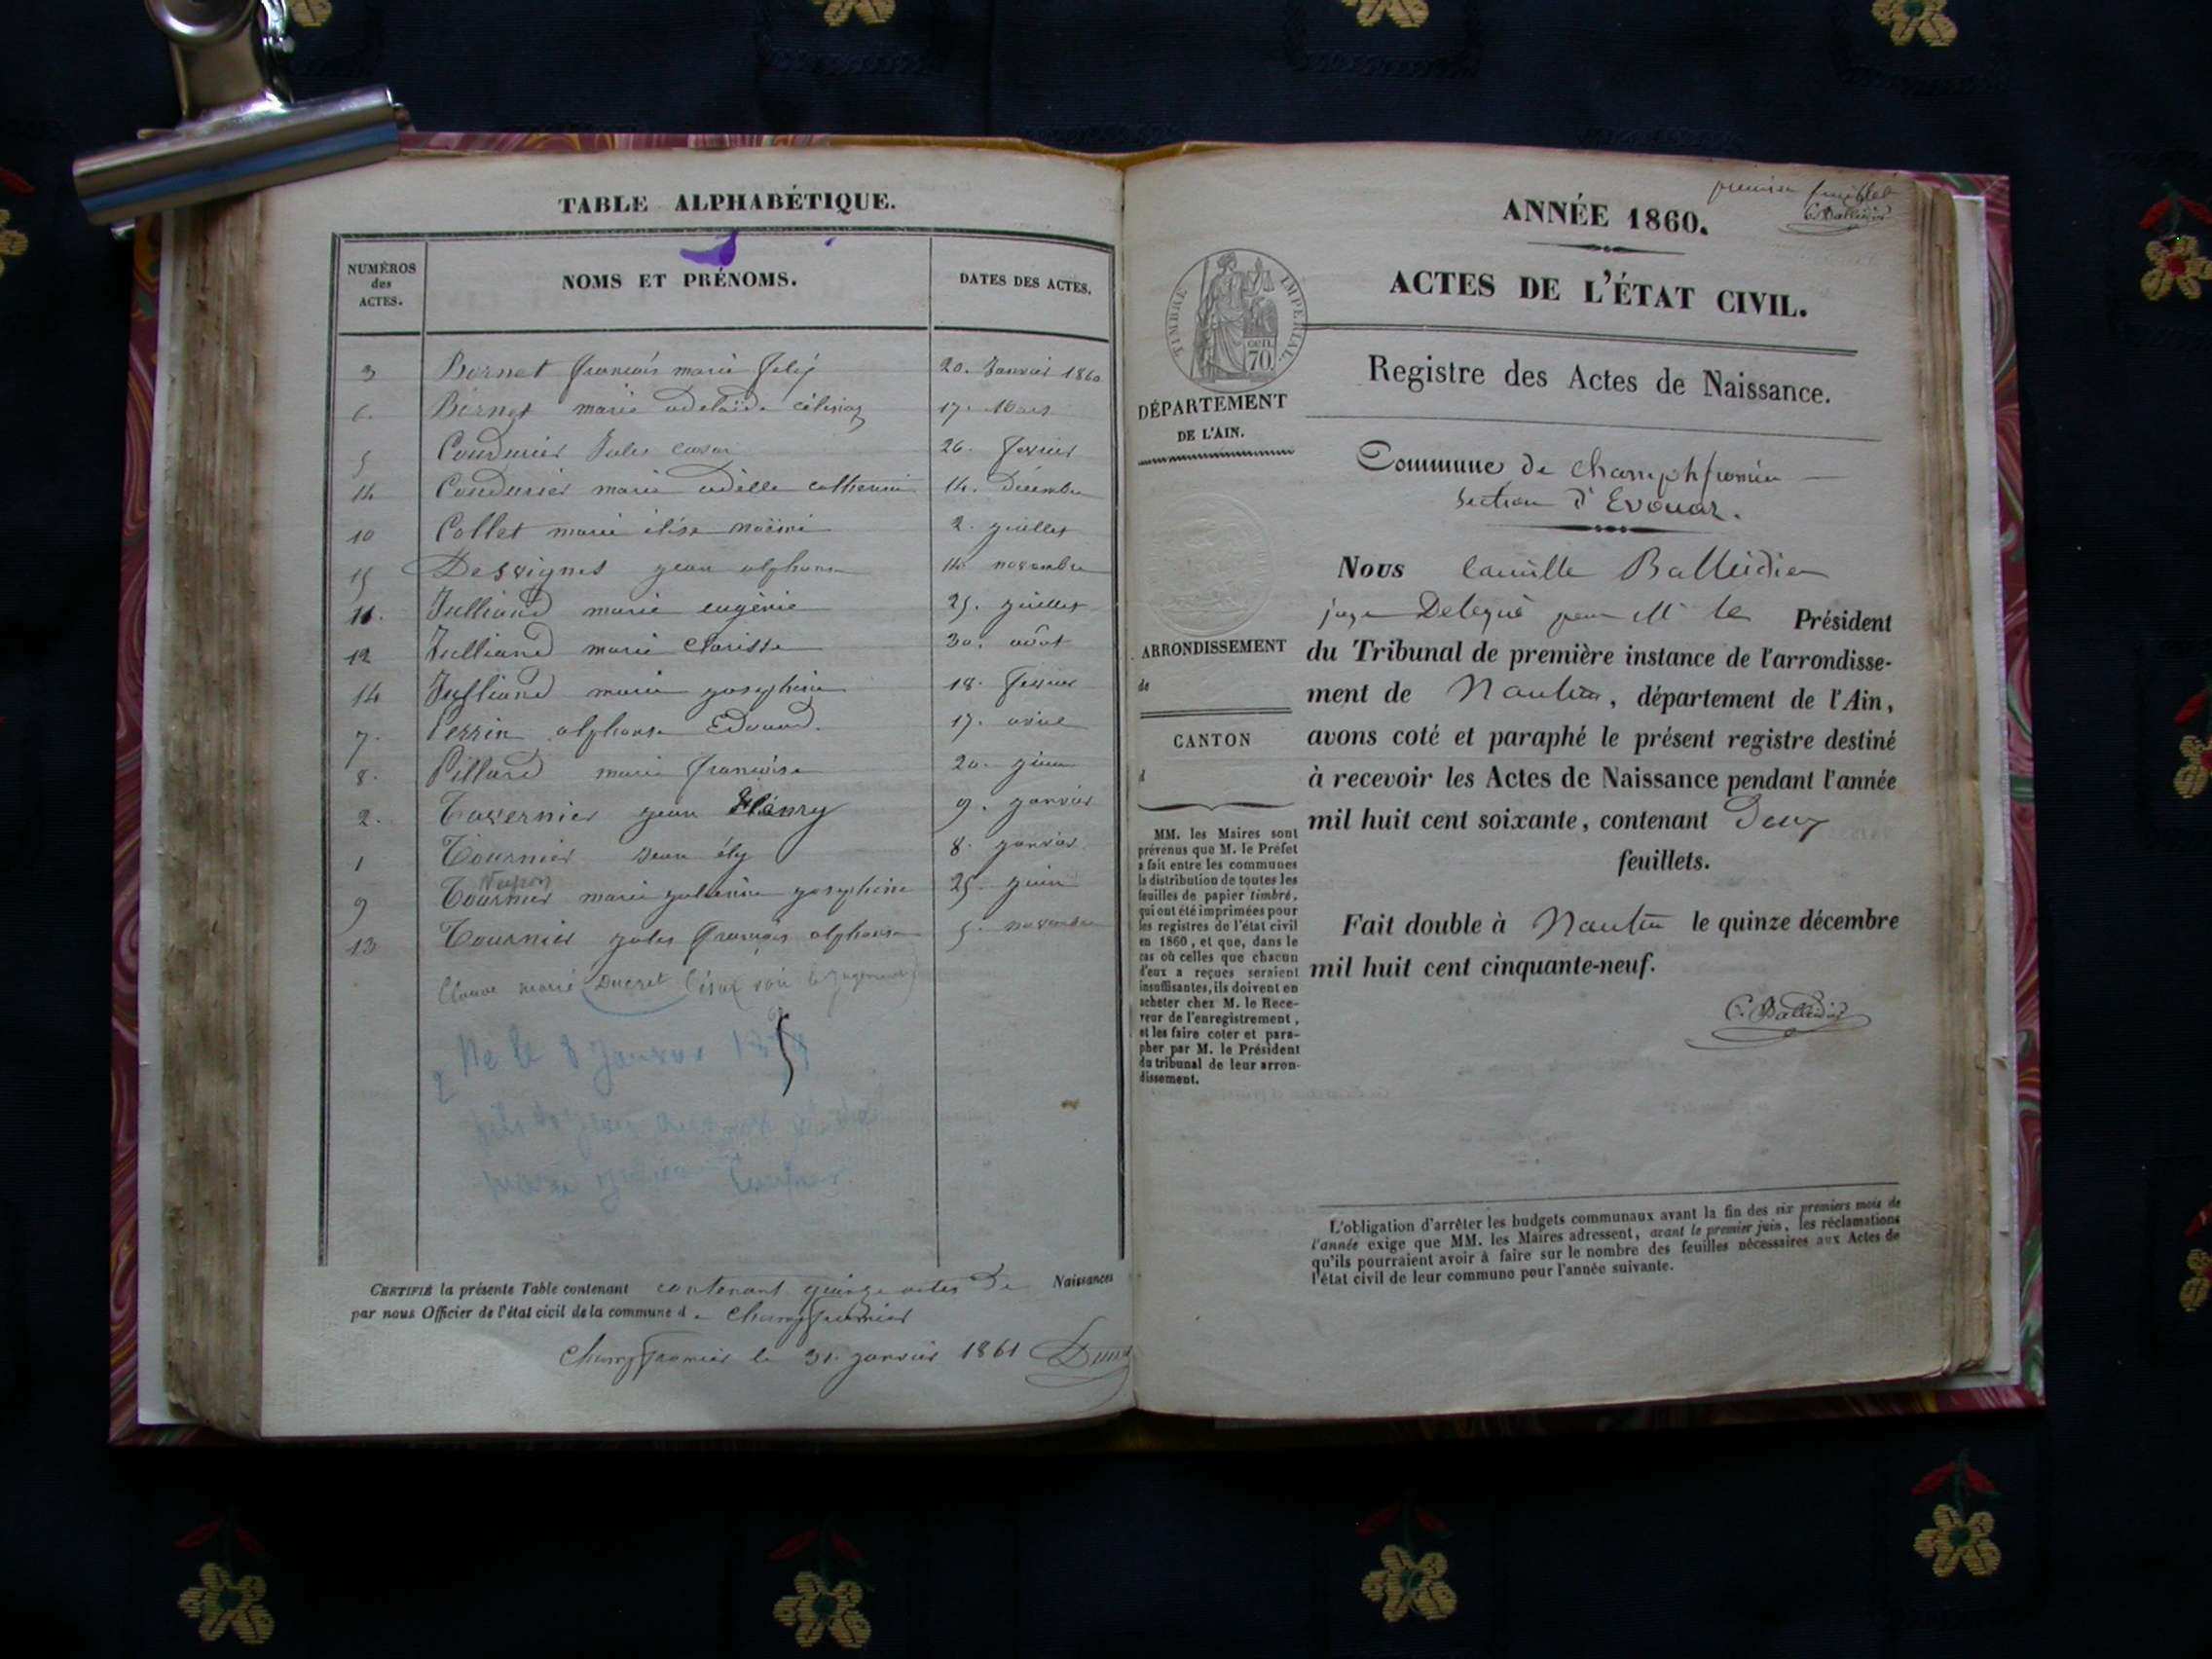 TABLE ALPHABÉTIQUE.
NUMÉROS
des
ACTES.
NOMS ET PRÉNOMS.
DATES DES ACTES.
3 Bornet françois marie felix 20. Janvier 1860
6. Bornet marie adelaïde 17. Mars
5 Coudurier Jules 26. fevrier
14 Coudurier marie adèlle catherine 14. Décembre
10 Collet marie élise noëmi 2. juillet
15 Dessignes jean alphonse 14 novembre
11. Julliand marie eugènie 25. juillet
12 Julliand marie Clarisse 30. août
14 Julliand marie josephine 18. fevrier
7. Perrin alphonse Edouard. 17. avril
8. Pillard marie françoise 20. juin
2. Tavernier jean Hénry 9. janvier
1 Tournier jean ély 8. janvier
9 Tournier marie josephine 25 juin
13 Tournier jules françois alphonse 5. novembre
marie Ducret
Ne le 8 Janvier
CERTIFIÉ la présente Table contenant contenant quinze actes De Naissances
par nous Officier de l'état civil de la commune d e Champfromier
Champfromier le 31. janvier 1861
premier feuillet
C. Balleidier
ANNÉE 1860.
ACTES DE L'ÉTAT CIVIL.
TIMBRE IMPÉRIAL
CEN. 70
Registre des Actes de Naissance.
DÉPARTEMENT
DE L'AIN.
Commune de Champfromier
Section d'Evouaz.
Nous Camille Balleidier
juge Délégué par Mr le Président
du Tribunal de première instance de l'arrondisse-
ment de Nantua, département de l'Ain,
avons coté et paraphé le présent registre destiné
à recevoir les Actes de Naissance pendant l'année
mil huit cent soixante, contenant Deux
feuillets.
Fait double à Nantua le quinze décembre
mil huit cent cinquante-neuf.
C. Balleidier
ARRONDISSEMENT
de
CANTON
d
MM. les Maires sont
prévenus que M. le Préfet
a fait entre les communes
la distribution de toutes les
feuilles de papier timbré,
qui ont été imprimées pour
les registres de l'état civil
en 1860, et que, dans le
cas où celles que chacun
d'eux a reçues seraient
insuffisantes, ils doivent en
acheter chez M. le Rece-
veur de l'enregistrement,
et les faire coter et para-
pher par M. le Président
du tribunal de leur arron-
dissement.
L'obligation d'arrêter les budgets communaux avant la fin des six premiers mois de
l'année exige que MM. les Maires adressent, avant le premier juin, les réclamations
qu'ils pourraient avoir à faire sur le nombre des feuilles nécessaires aux Actes de
l'état civil de leur commune pour l'année suivante.